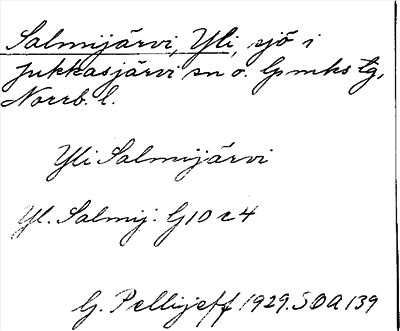 Salmijärvi, Yli, sjö i
Jukkasjärvi sn o. lpmks tg,
Norrb. l.
Yli Salmijärvi
Yl. Salmij. G10 c4
G. Pellijeff 1929. SOA 139